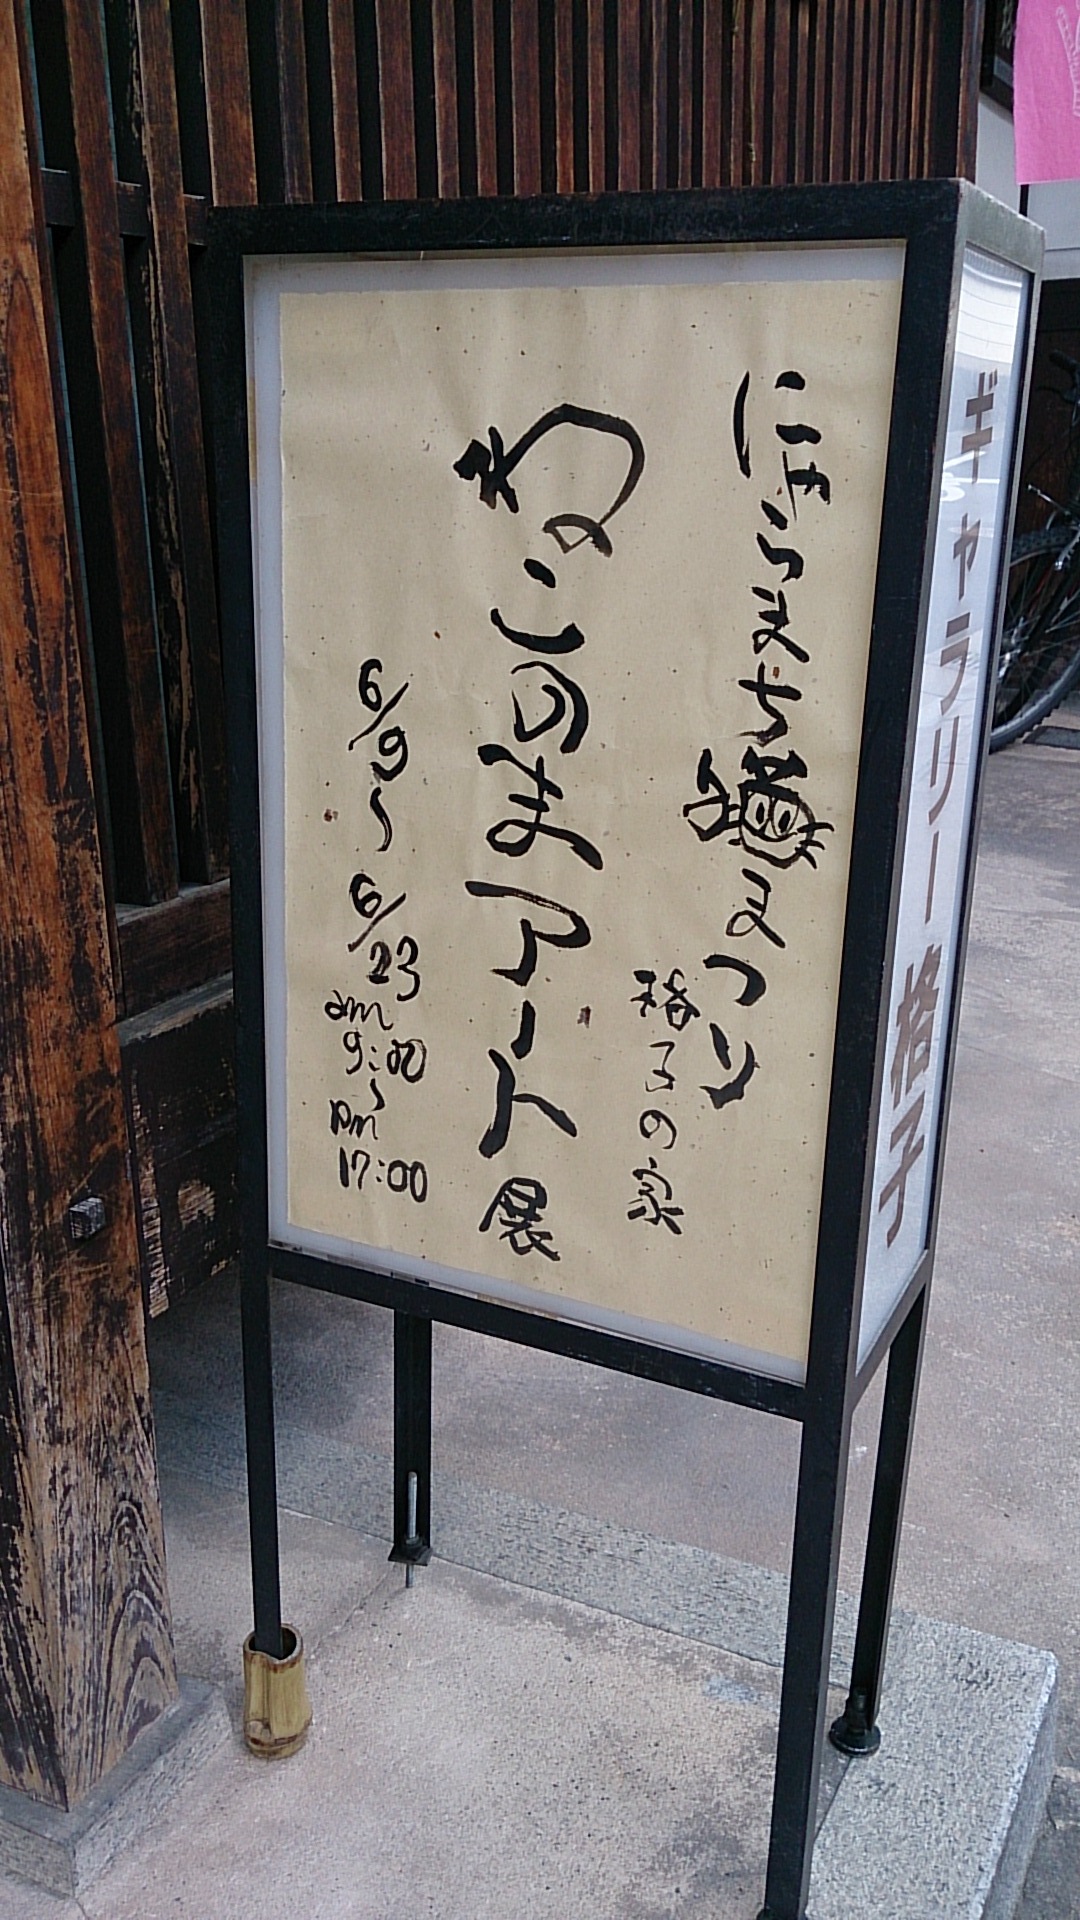 にゃらまち猫まつり
格子の家
ねこのまアート展
6/9〜6/23
am
9:00
〜
pm
17:00
ギャラリー格子